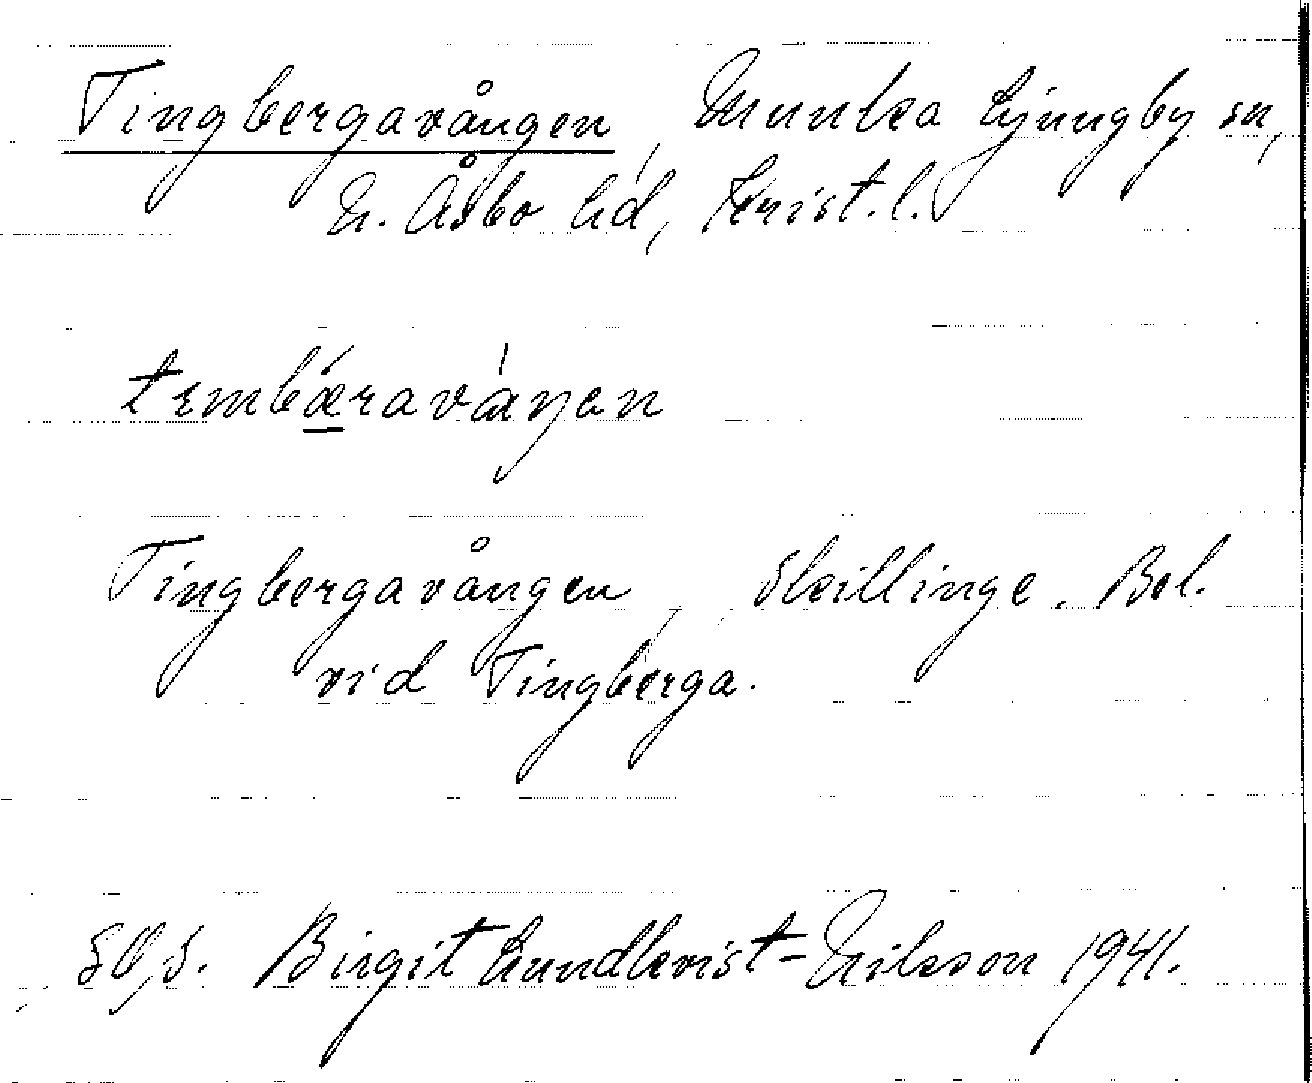 Tingbergavången, Munka Ljungby sn,
N. Åsbo hd, Krist. l.
tembǽraváŋen
Tingbergavången, Skillinge. Bel.
vid Tingberga.
Birgit Lundkvist-Nilsson 1941.